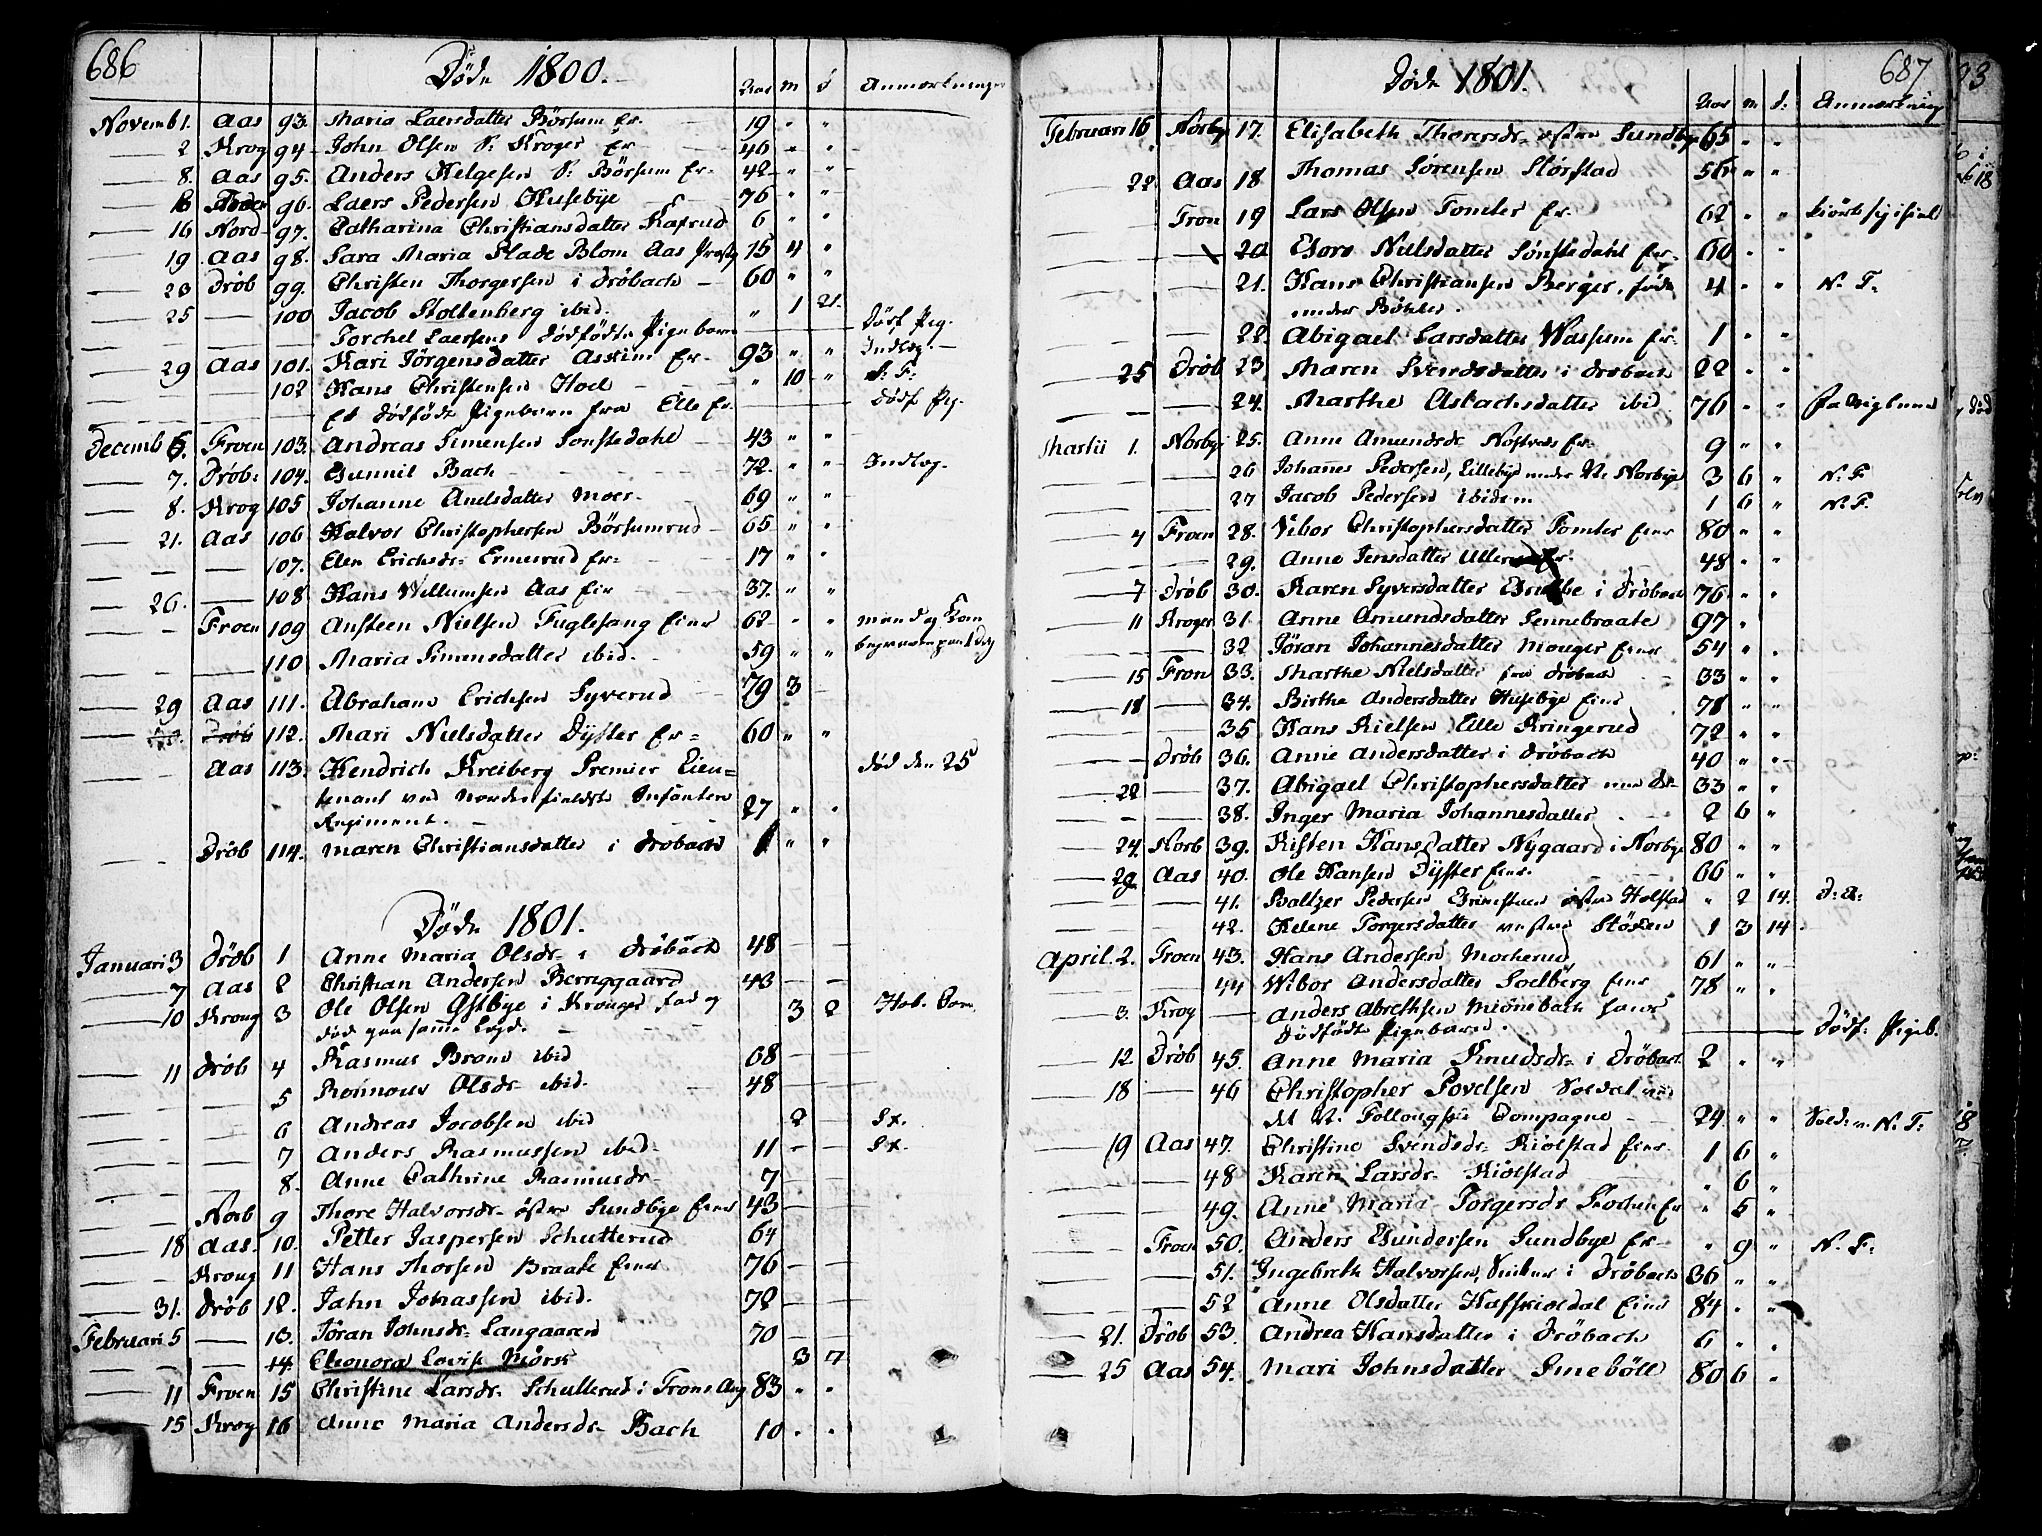 686
Døde 1800.
Aar m d Anmerkninger
Novemb 1. Aas 93. Maria Laersdatter Börsum Er. 19 " "
2 Krog 94 John Olsen N: Kroger Er 46 " "
8. Aas 95. Anders Helgesen N: Börsum Er. 42 " "
96. Laers Pedersen Husebye 76 " "
16 Nord 97. Catharina Christiansdatter Kaxrud 6 " "
19 Aas 98. Sara Maria Stade Blom Aas Prestg 15 4 "
23 Dröb 99. Christen Thorgersen i Dröbach 60 " "
25 — 100 Jacob Stoltenberg ibid. " 1 21.
Torchel Laersens dødfödte Pigebarn Dödf Pig.
29 Aas 101. Kari Jörgensdatter Asstim Er. 93 " " Indlag.
102 Hans Christensen Hoel " 10 "
Et dödfödt Pigebarn fra Elle Er. Dödf Pig.
Decemb 6. Froen 103. Andreas Simensen Sonstedahl 43 " "
7. Dröb: 104. Gunnil Bach 72. " " Indlag.
8. Krog 105 Johanne Axelsdatter Moer. 69 " "
21. Aas 106 Halvor Christophersen Börsumrud 65 " "
107. Elen Erichsdr. Ermerud Er. 17 " "
26. — 108 Hans Willumsen Aas Eier 37. " "
Froen 109 Ansteen Nielsen Fuglesang Eier 62 " " mand og Kone
110 Maria Simensdatter ibid. 59 " " begravne paa 1 dag
29 Aas 111. Abraham Erichsen Syverud 79 3
112. Mari Nielsdatter Dyster Er. 60 " "
Aas 113. Hendrich Kreiberg Premier Lieu= død den 25
tenant ved Nordenfieldste Infanterie 27 " "
Regiment.
Dröb 114. Maren Christiansdatter i Drobach 1 " "
Døde 1801.
Januari 3 Dröb 1 Anne Maria Olsdr. i Dröbach 48
7 Aas 2 Christian Andersen Berggaard 43
10 Kroug 3 Ole Olsen Østbye i Krouger föd og 3 2
död paa samme Logd.
11 Dröb 4 Rasmus Brand ibid 68
5 Rönnour Olsdr. ibid. 48
6 Andreas Jacobsen ibid 2
7 Anders Rasmussen ibid. 11
8. Anne Cathrine Rasmusdr. 7
Norb 9 Thore Halvorsdr. östre Sundbye Eier 43
18 Aas. 10. Petter Jaspersen Schutterud 64
Kroug 11 Hans Thorsen Braate Eier 76
31. Dröb 12. Jahn Johassen ibid. 72
Februari 5 — 13. Jöran Johnsdr. Langaaren 70
14. Eleonora Lovise Mörsk 3 7
11 Froen 15 Christine Larsdr. Schutterud i Frons Ang 83 " "
15 Krog 16 Anne Maria Andersdr. Bach 10 " "
687
Døde 1801.
Aar m d: Anmerkning
Februari 16 Norby 17. Elisabeth Thoersdr. östre Sundbye 65 " "
22 Aas 18 Thomas Sörensen Störstad 56 " "
Fron 19 Lars Olsen Tomter Er. 62 " "
20 Goro Nielsdatter Sönstedahl Er. 60 "
21. Hans Christiansen Berger, föde 4 " " N. F.
under Böhler.
22. Abigael Larsdatter Wassum Er. 1 " "
25 Dröb 23 Maren Svendsdatter i Drobach 22 " "
24. Marthe Asbachsdatter ibid. 76 " "
Martii 1. Norby 25. Anne Amundsdr. Nostvedt Er. 9 " "
26 Johannes Pedersen, Lillebye under N. Norbye 3 6 " N. F.
27 Jacob Pedersen ibidem 1 6 " N. F.
4 Froen 28. Vibor Christophersdatter Tomter Eier 80 " "
29. Anne Jensdatter Ullerud Er. 48 " "
7 Dröb 30. Karen Syversdatter Grubbe i Dröbach 76 " "
11 Kroger 31. Anne Amundsdatter Sennebraate 97 "
32 Jöran Johannesdatter Mouger Eier 54 " "
15 Fron 33. Marthe Nielsdatter fra Dröbach 33 " "
18 — 34. Birthe Andersdatter Husebye Eier 78 " "
35 Hans Nielsen Elle Kringerud 72 " "
Dröb 36. Anne Andersdatter i Dröbach 40 " "
22 — 37. Abigael Christophersdatter 33 " "
38. Inger Maria Johannesdatter 2 6 "
24. Norb 39. Kisten Hansdatter Nygaard i Norbye 80 " "
29 Aas 40. Ole Hansen Dyster Eier. 66 " "
41. Baltzer Pedersen Grimstuen östre Holstad " 2 14. D: A:
42. Helene Torgersdatter vestre Skoxen 1 3 14.
April. 2. Froen 43. Hans Andersen Mocherud 61 " "
44 Wibor Andersdatter Soelberg Eier 78 " "
3. Krog — Anders Abrethsen Miönebach hans
Dödfödte Pigebarn. Dödf: Pigeb.
12 Dröb 45. Anne Maria Knudsdr. i Dröbach 2 " "
18 — 46 Christopher Povelsen Soldat ved
det N. Follougske Compagne 24. " " Sold: N. F:
19 Aas 47. Christine Svendsdr. Kiölstad Eier. 1 6 "
48 Karen Larsdr. Kiölstad " 6 "
49. Anne Maria Torgersdr Skoxen Er " 5 "
Froen 50. Anders Gundersen Sundbye Er. " 9 " N. F:
51. Ingebreth Halvorsen, i Dröbach 36 " "
52 Anne Olsdatter Hafskioldal Eier 84 " "
21. Dröb 53. Andrea Hansdatter i Dröbach 6 " "
25 Aas 54. Mari Johnsdatter Smeböll 80 6 "